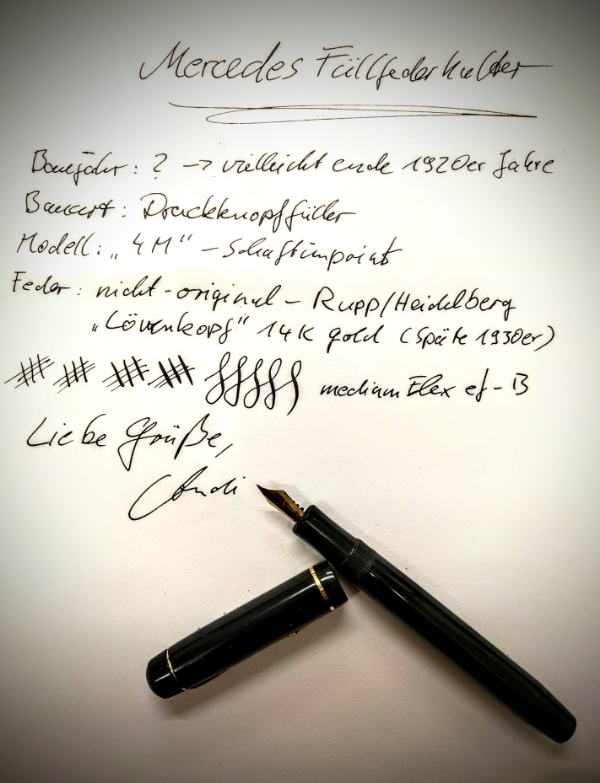 Mercedes Füllfederhalter
Baujahr: ? → vielleicht ende 1920er Jahre
Bauart: Druckknopffüller
Modell: „4M" - Schaftimprint
Feder: nicht-original - Rupp/Heidelberg
„Lövenkopf" 14K gold (Späte 1930er)
medium Flex ef-B
Liebe Grüße,
Andi